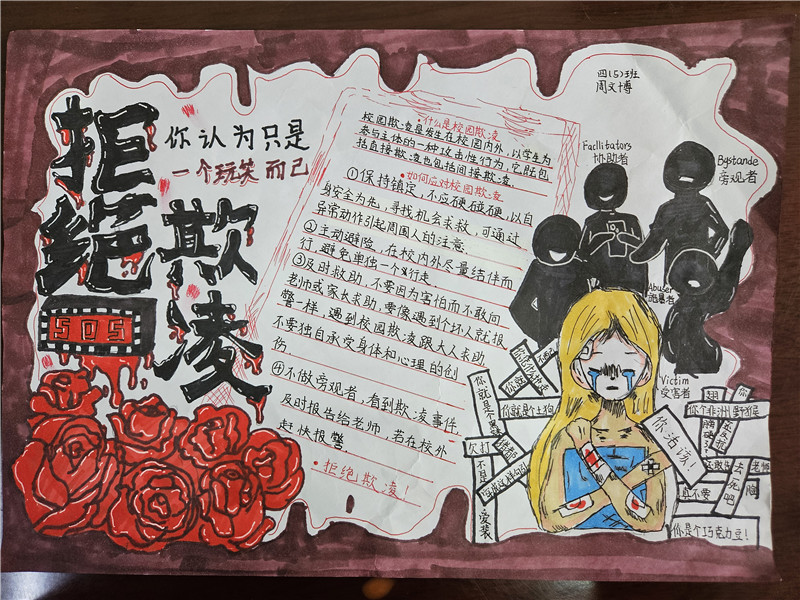 四(5)班
周文博
拒绝
欺凌
SOS
你认为只是
一个玩笑而已
·什么是校园欺凌
校园欺凌是发生在校园内外,以学生为
参与主体的一种攻击性行为,它既包
括直接欺凌也包括间接欺凌.
·如何应对校园欺凌
①保持镇定,不应硬碰硬,以自
身安全为先,寻找机会求救,可通过
异常动作引起周围人的注意.
②主动避险,在校内外尽量结伴而
行,避免单独一个人行走.
③及时救助,不要因为害怕而不敢向
老师或家长求助,要像遇到个坏人就报
警一样,遇到校园欺凌跟大人求助
不要独自承受身体和心理的创
伤.
④不做旁观者,看到欺凌事件
及时报告给老师,若在校外
赶快报警.
·拒绝欺凌!
Facllitators
协助者
Bystande
旁观者
Abuser
施暴者
Victim
受害者
你就是个土狗
欠打
爱装
你活该!
你个非洲野猴
老师
去死吧
你是个巧克力豆!